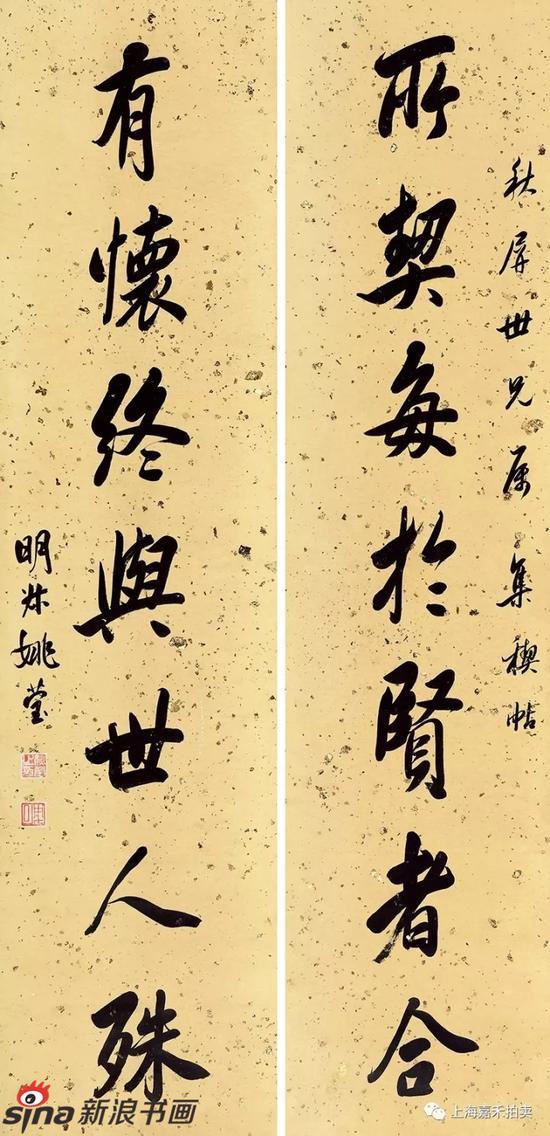 秋屏世兄属集禊帖
所契每於賢者合
有懷終與世人殊
明叔姚瑩
sina新浪书画
上海嘉禾拍卖